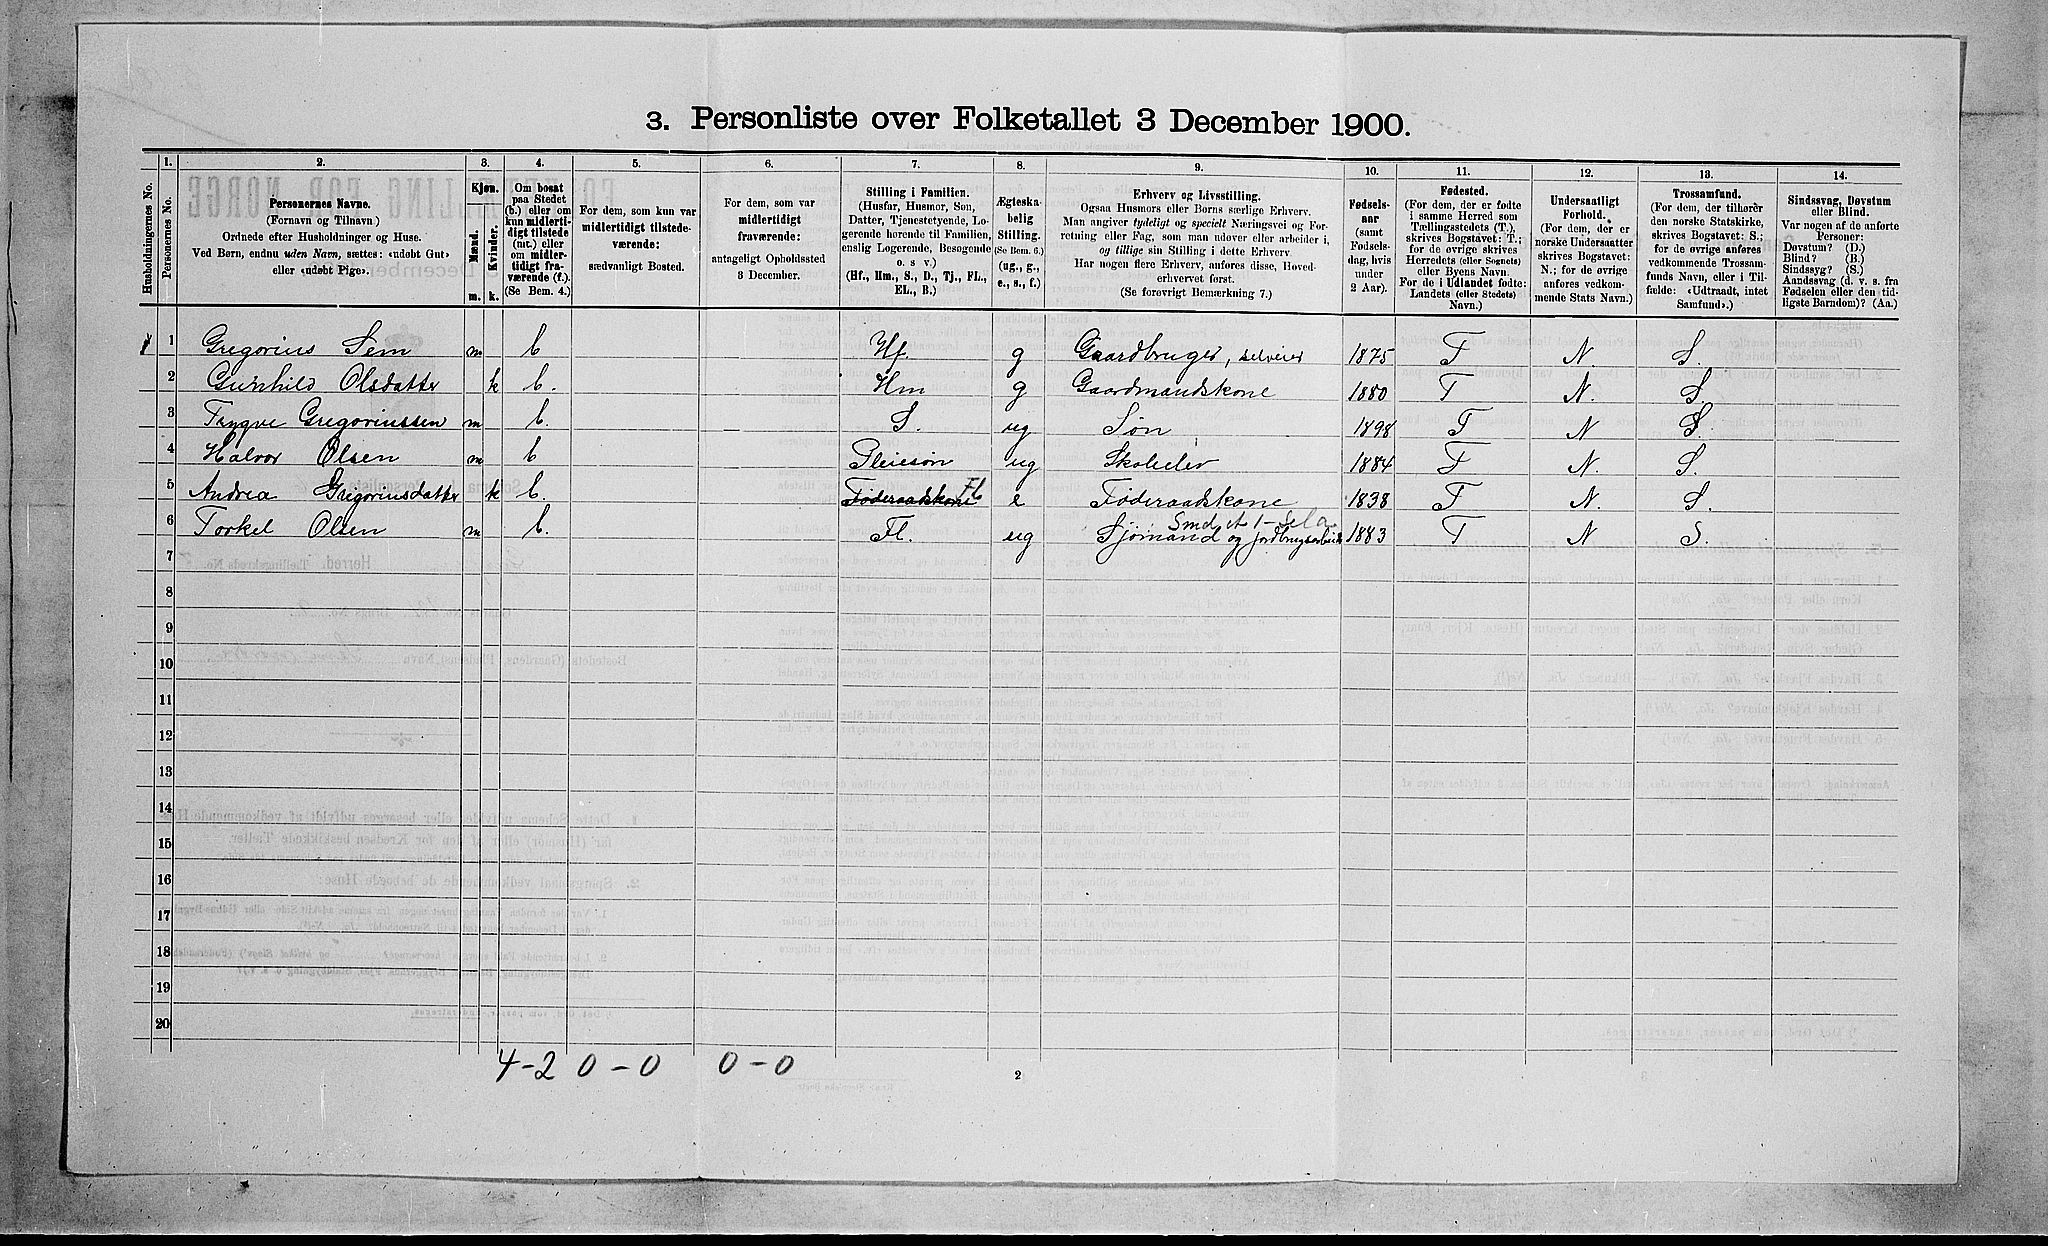 3. Personliste over Folketallet 3 December 1900.
Husholdningernes No.
1.
Personernes No.
2.
Personernes Navne.
(Fornavn og Tilnavn)
Ordnede efter Husholdninger og Huse.
Ved Børn, endnu uden Navn, sættes: «udøbt Gut»
eller «udøbt Pige».
3.
Kjøn.
Mænd.
Kvinder.
m. k.
4.
Om bosat
paa Stedet
(b.) eller om
kun midlerti-
digt tilstede
(mt.) eller
om midler-
tidigt fra-
værende (f.).
(Se Bem. 4.)
5.
For dem, som kun var
midlertidigt tilstede-
værende:
sædvanligt Bosted.
6.
For dem, som var
midlertidigt
fraværende:
antageligt Opholdssted
3 December.
7.
Stilling i Familien.
(Husfar, Husmor, Søn,
Datter, Tjenestetyende, Lo-
gerende hørende til Familien,
enslig Logerende, Besøgende
o. s. v.)
(Hf., Hm., S., D., Tj., FL.,
EL., B.)
8.
Ægteska-
belig
Stilling.
(Se Bem. 6.)
(ug., g.,
e., s., f.)
9.
Erhverv og Livsstilling.
Ogsaa Husmors eller Børns særlige Erhverv.
Man angiver tydeligt og specielt Næringsvei og For-
retning eller Fag, som man udøver eller arbeider i,
og tillige sin Stilling i dette Erhverv.
Har nogen flere Erhverv, anføres disse, Hoved-
erhvervet først.
(Se forøvrigt Bemærkning 7.)
10.
Fødsels-
aar
(samt
Fødsels-
dag, hvis
under
2 Aar).
11.
Fødested.
(For dem, der er fødte
i samme Herred som
Tællingsstedets (T.),
skrives Bogstavet: T.;
for de øvrige skrives
Herredets (eller Sognets)
eller Byens Navn.
For de i Udlandet fødte:
Landets (eller Stedets)
Navn.)
12.
Undersaatligt
Forhold.
(For dem, der er
norske Undersaatter
skrives Bogstavet:
N.; for de øvrige
anføres vedkom-
mende Stats Navn.)
13.
Trossamfund.
(For dem, der tilhører
den norske Statskirke,
skrives Bogstavet: S.;
for de øvrige anføres
vedkommende Trossam-
funds Navn, eller i Til-
fælde: «Udtraadt, intet
Samfund».)
14.
Sindssvag, Døvstum
eller Blind.
Var nogen af de anførte
Personer:
Døvstum? (D.)
Blind? (B.)
Sindssyg? (S.)
Aandssvag (d. v. s. fra
Fødselen eller den tid-
ligste Barndom)? (Aa.)
1 Gregorius Sem m b Hf. g Gaardbruger, selveier 1875 T N S.
2 Gunhild Olsdatter k b. Hm g Gaardmandskone 1880 T N. S.
3 Trygve Gregoriussen m b. S. ug Søn 1898 T N S.
4 Halvor Olsen m b Pleiesøn ug Skoleelev 1884 T N. S.
5 Andrea Grigoriusdatter k b. Føderaadskone Fl e Føderaadskone 1838 T N. S.
6 Torkel Olsen m b. Fl. ug Sjømand og jordbrugsarbeide 1883 T N S.
7
8
9
10
11
12
13
14
15
16
17
18
19
20
4-2 0-0 0-0
2